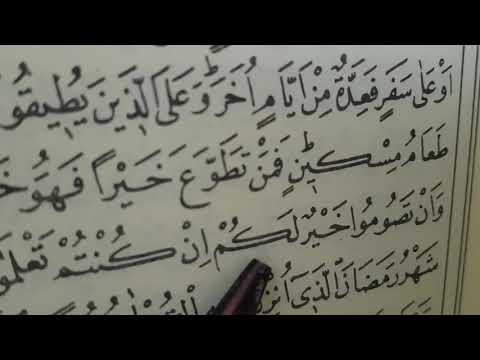 اَوْ عَلٰى سَفَرٍ فَعِدَّةٌ مِّنْ اَيَّامٍ اُخَرَ ؕ وَعَلَى الَّذِيْنَ
طَعَامُ مِسْكِيْنٍ ؕ فَمَنْ تَطَوَّعَ خَيْرًا فَهُوَ
وَاَنْ تَصُوْمُوْا خَيْرٌ لَّكُمْ اِنْ كُنْتُمْ
شَهْرُ رَمَضَانَ الَّذِيْٓ